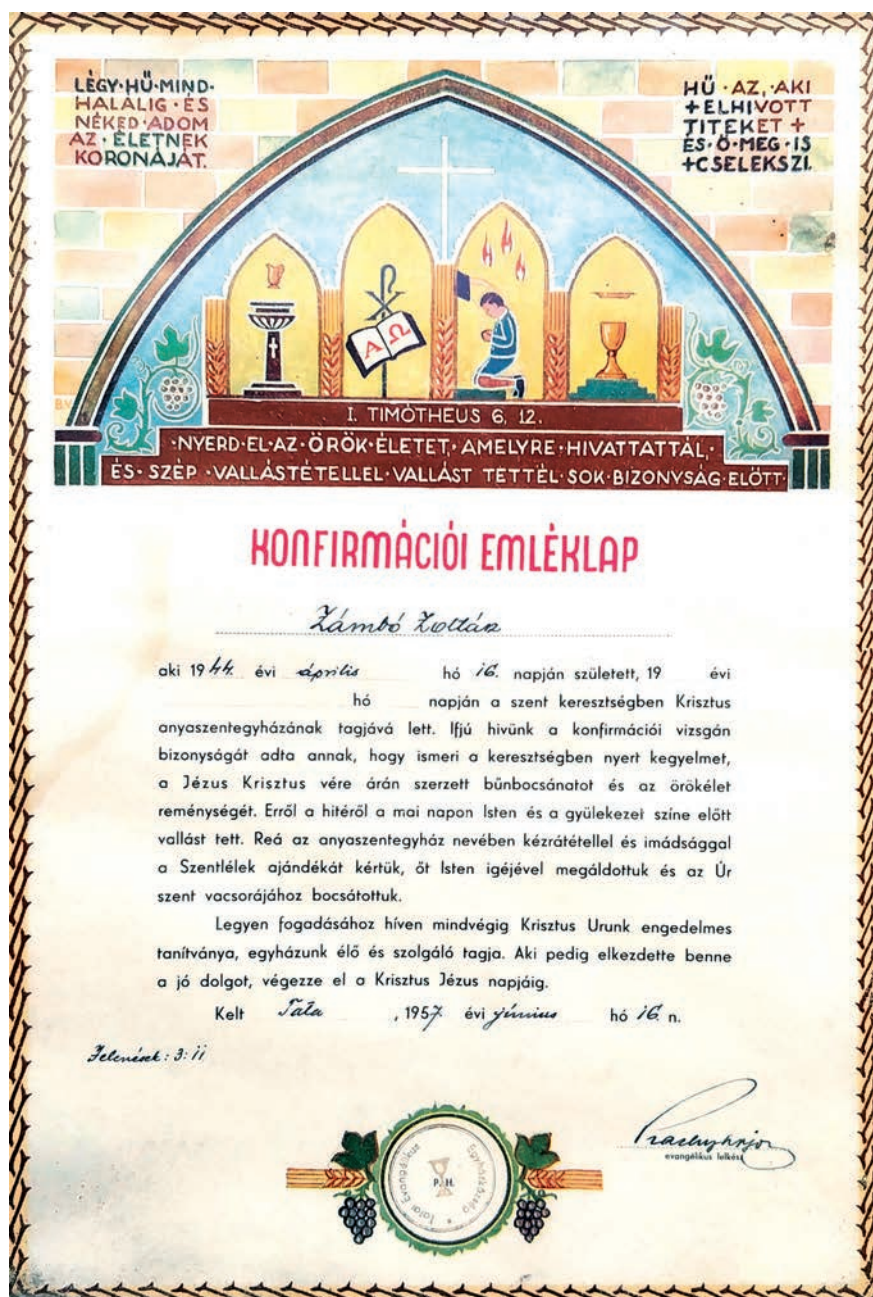 LÉGY·HŰ·MIND·
HALÁLIG·ÉS
NÉKED·ADOM
AZ·ÉLETNEK
KORONÁJÁT.
HŰ·AZ, AKI
+ELHIVOTT
TITEKET +
ÉS·Ő·MEG·IS
+CSELEKSZI.
Α Ω
B.V
I. TIMÓTHEUS 6, 12.
·NYERD·EL·AZ·ÖRÖK·ÉLETET, AMELYRE·HIVATTATTÁL,·
ÉS·SZÉP·VALLÁSTÉTELLEL·VALLÁST TETTÉL·SOK·BIZONYSÁG·ELŐTT·
KONFIRMÁCIÓI EMLÉKLAP
Zámbó Zoltán
aki 1944. évi április hó 16. napján született, 19 évi
hó napján a szent keresztségben Krisztus
anyaszentegyházának tagjává lett. Ifjú hivünk a konfirmációi vizsgán
bizonyságát adta annak, hogy ismeri a keresztségben nyert kegyelmet,
a Jézus Krisztus vére árán szerzett bűnbocsánatot és az örökélet
reménységét. Erről a hitéről a mai napon Isten és a gyülekezet színe előtt
vallást tett. Reá az anyaszentegyház nevében kézrátétellel és imádsággal
a Szentlélek ajándékát kértük, őt Isten igéjével megáldottuk és az Úr
szent vacsorájához bocsátottuk.
Legyen fogadásához híven mindvégig Krisztus Urunk engedelmes
tanítványa, egyházunk élő és szolgáló tagja. Aki pedig elkezdette benne
a jó dolgot, végezze el a Krisztus Jézus napjáig.
Kelt Tata, 1957 évi június hó 16. n.
Jelenések: 3:11
evangélikus lelkész
Tatai Evangélikus Egyházközség
P. H.